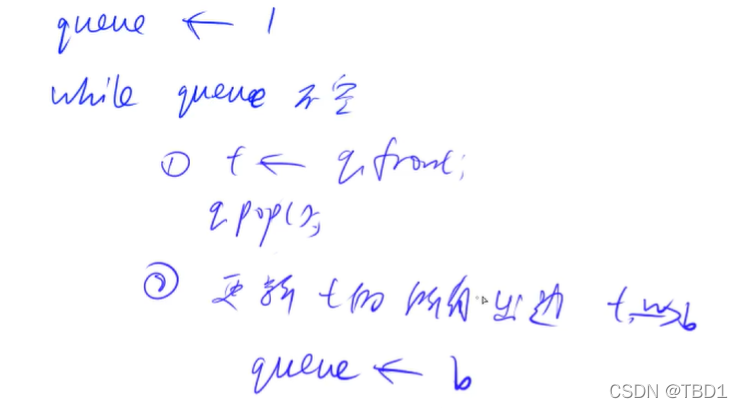 queue ← 1
while queue 不空
① t ← q.front;
q.pop();
② 更新t的所有出边 t w→ b
queue ← b
CSDN @TBD1